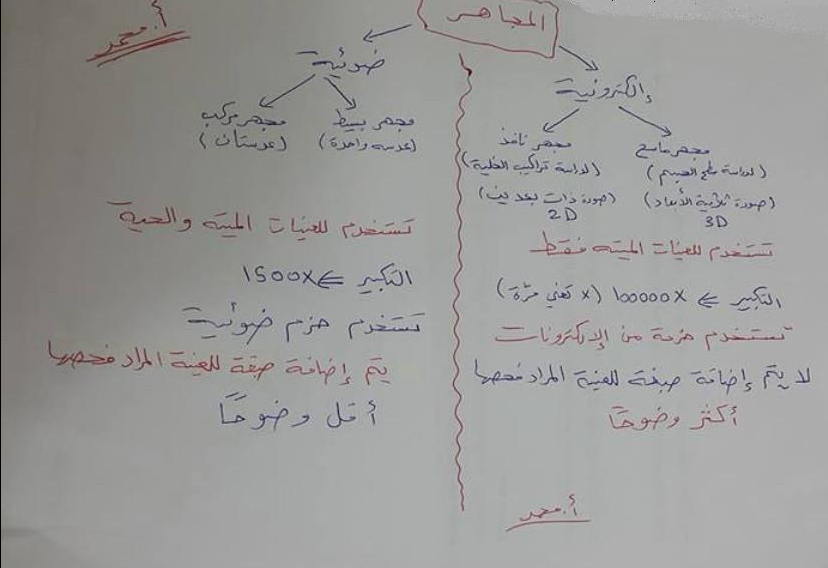 المجاهر
أ. محمد
إلكترونية
مجهر ماسح
(لدراسة سطح الجسم)
(صورة ثلاثية الأبعاد)
3D
مجهر نافذ
(لدراسة تراكيب الخلية)
(صورة ذات بعدين)
2D
تستخدم للعينات الميته فقط
التكبير ⇐ 100000X (X تعني مرّة)
تستخدم حزمة من الإلكترونات
لا يتم إضافة صبغة للعينة المراد فحصها
أكثر وضوحاً
أ. محمد
ضوئية
مجهر بسيط
(عدسه واحدة)
مجهر مركب
(عدستان)
تستخدم للعينات الميته والحية
التكبير ⇐ 1500X
تستخدم حزم ضوئية
يتم إضافة صبغة للعينة المراد فحصها
أقل وضوحاً